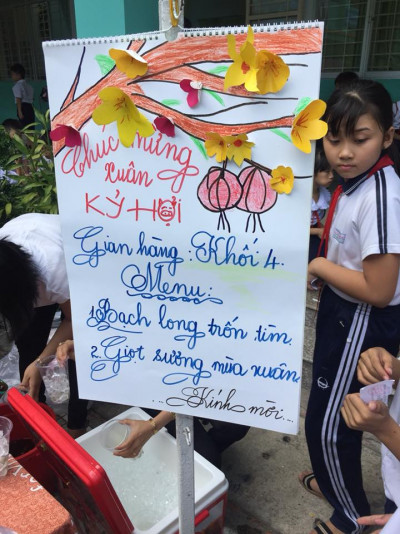 Chúc mừng
xuân
KỶ HỢI
Gian hàng : Khối 4.
Menu :
1. Bạch long trốn tìm.
2. Giọt sương mùa xuân.
... Kính mời ...